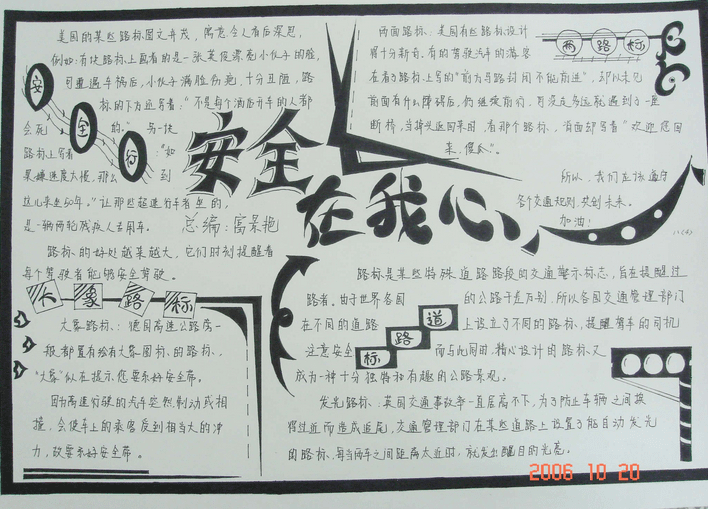 美国的某些路标图文并茂，寓意令人看后深思，
例如：有块路标上画着的是一张英俊漂亮小伙子的脸，
可遭遇车祸后，小伙子满脸伤疤，十分丑陋，路
标的下方还写着：“不是每个酒后开车的人都
会死的。”另一块
路标上写着：“如
果嫌速度太慢，那么到
这儿来走50年。”让那些超速行手看的，
是一辆两轮残疾人专用车。
路标的好处越来越大，它们时刻提醒着
每个驾驶者能够安全驾驶。
安全行
安全在我心
总编：富景艳
两面路标
两面路标：美国有些路标设计
得十分新奇，有的驾驶汽车的游客
在看了路标上写的“前方马路封闭不能前进”，却以未见
前面有什么障碍后，仍继续前行，可没走多远就遇到了一座
断桥，当掉头返回来时，看那个路标，背面却写着“欢迎您回
来，傻瓜”。
所以，我们应该遵守
各个交通规则，共创未来。
加油！
大象路标
大象路标：德国高速公路旁一
般都置有绘有大象图标的路标，
“大象”似在提示您要系好安全带。
因为高速行驶的汽车突然制动或相
撞，会使车上的乘客受到相当大的冲
力，故要系好安全带。
道路标
路标是某些特殊道路路段的交通警示标志，旨在提醒过
路者。由于世界各国的公路千差万别，所以各国交通管理部门
在不同的道路上设立了不同的路标，提醒驾车的司机
注意安全而与此同时，精心设计的路标又
成为一种十分独特和有趣的公路景观。
发光路标：英国交通事故率一直居高不下，为了防止车辆之间挨
得过近而造成追尾，交通管理部门在某些道路上设置了能自动发光
的路标，每当两车之间距离太近时，就发出醒目的光亮。
2006 10 20